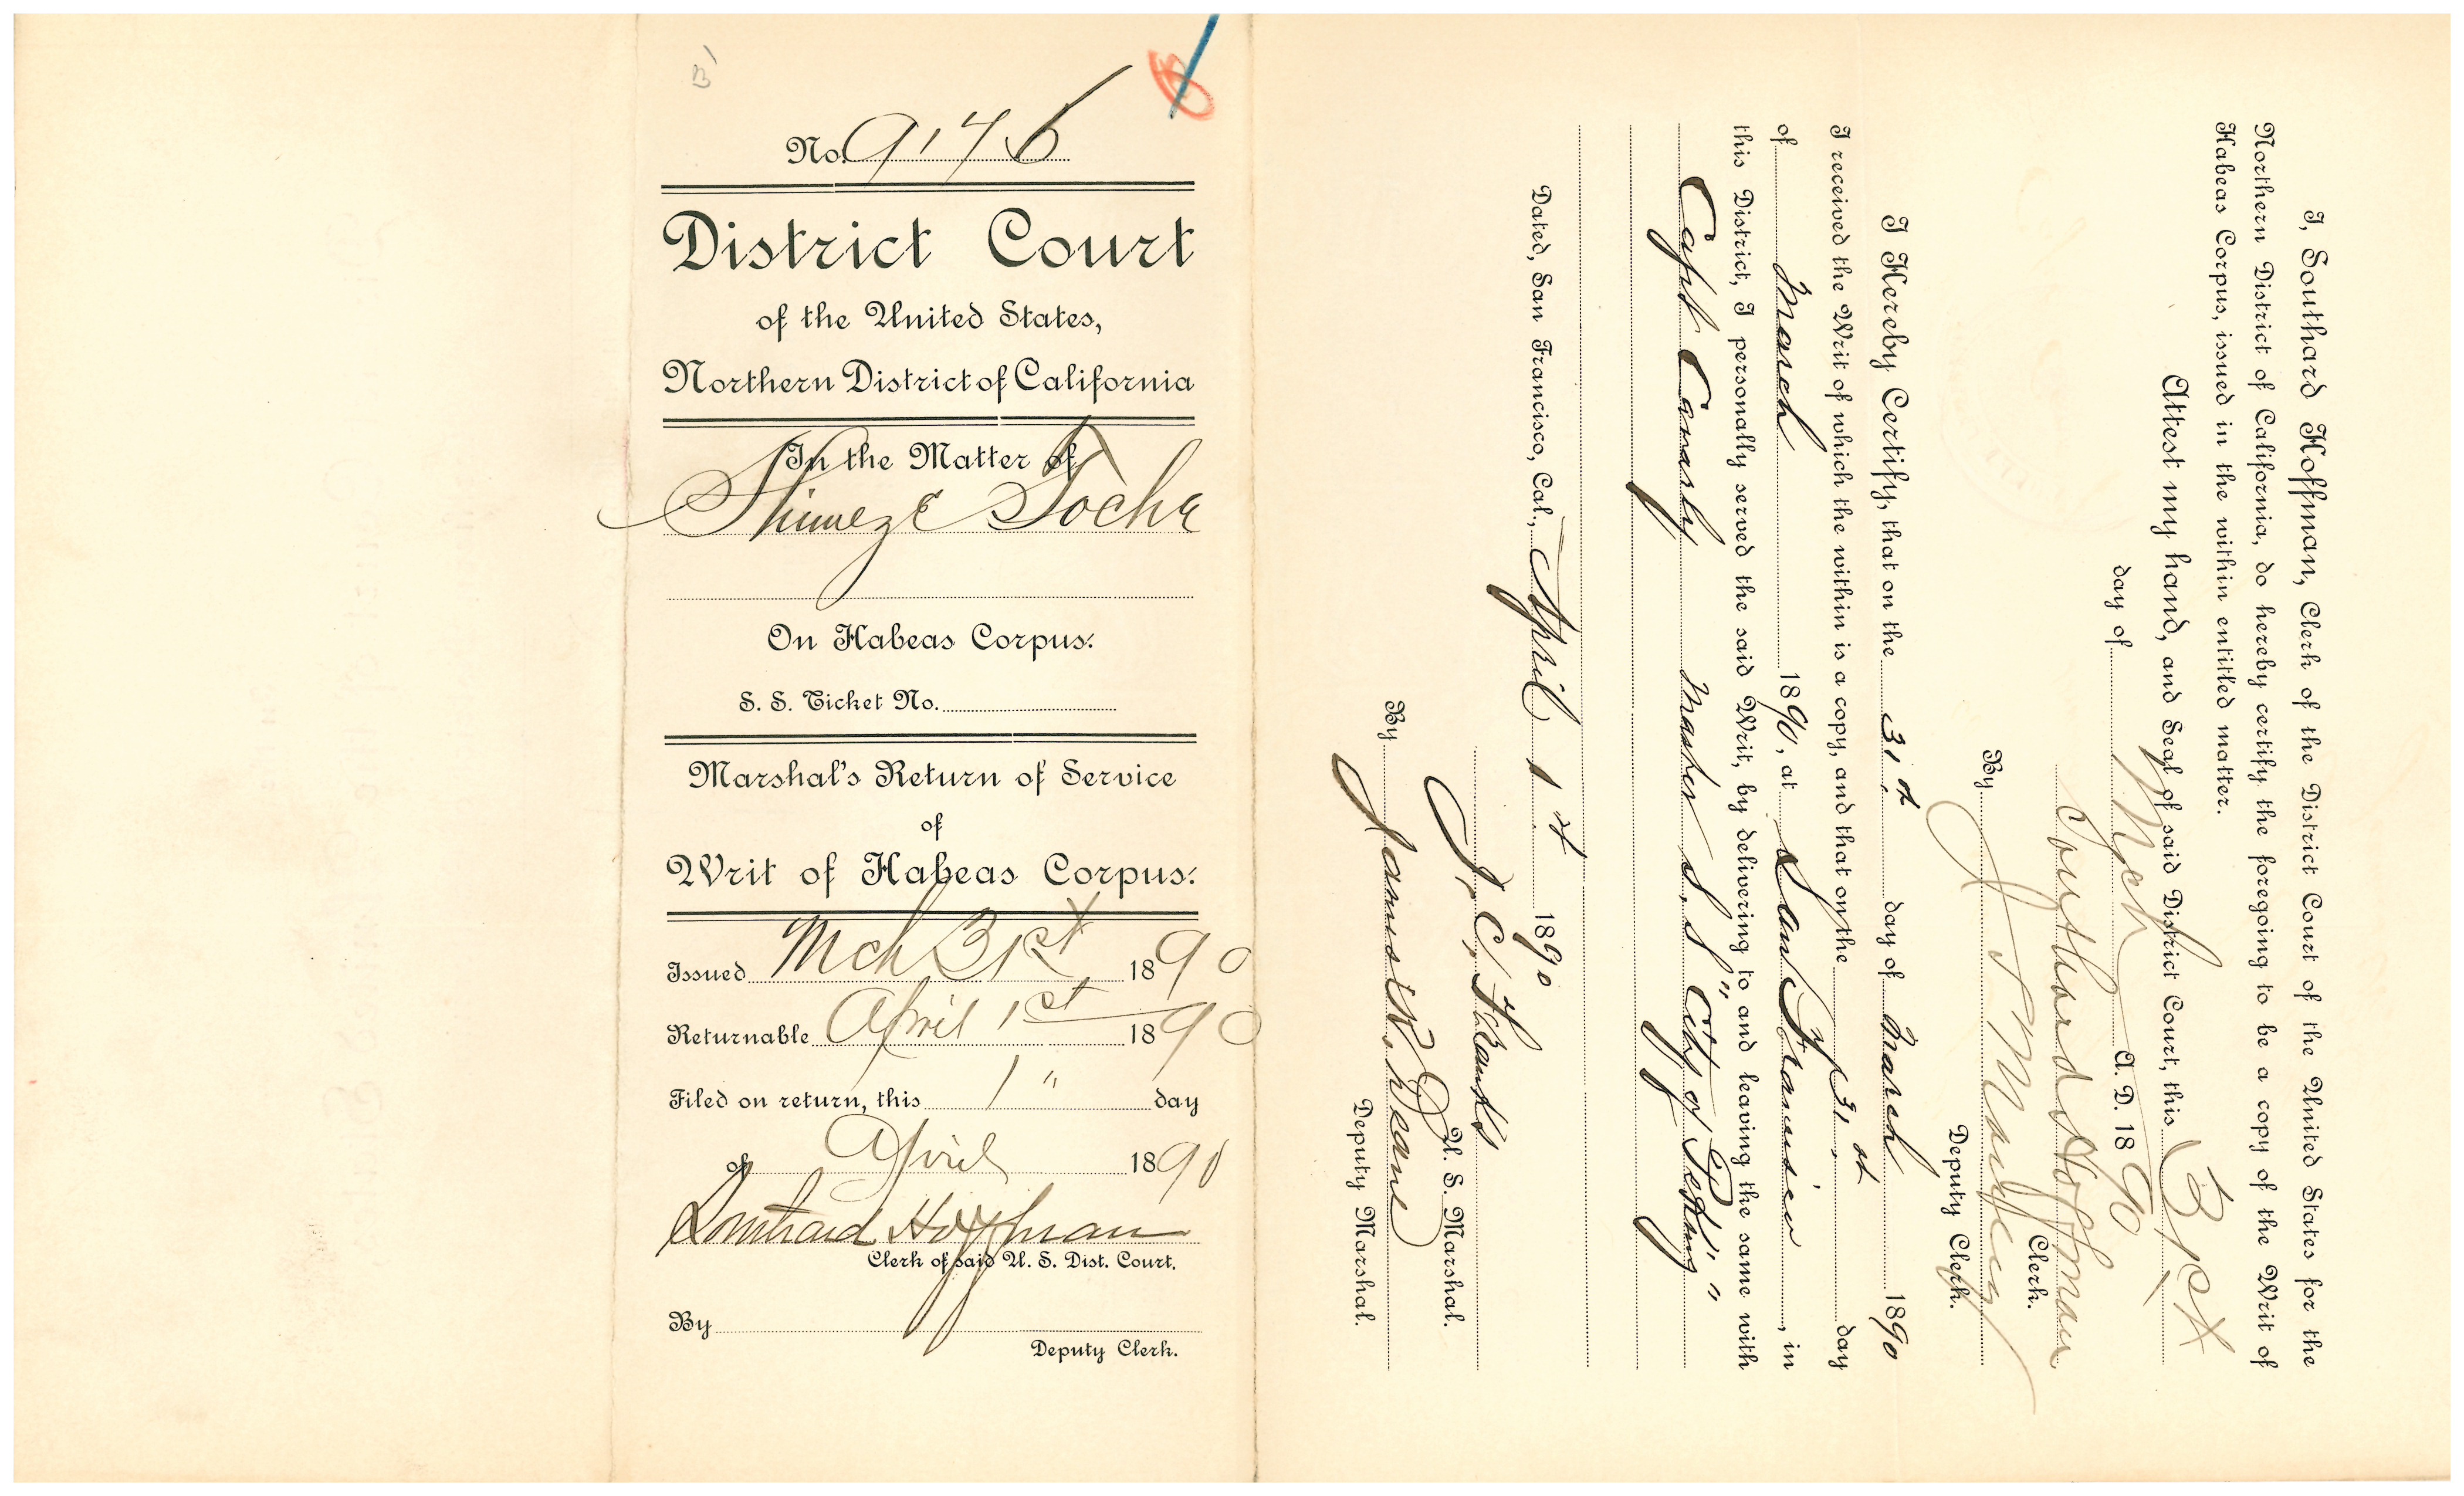 No. 9146
District Court
of the United States,
Northern District of California
In the Matter of
Shimeze Tocha
On Habeas Corpus.
S. S. Ticket No.
Marshal's Return of Service
of
Writ of Habeas Corpus.
Issued Mch 31st 1890
Returnable April 1st 1890
Filed on return, this 1" day
of April 1890
Southard Hoffman
Clerk of said U. S. Dist. Court.
By
Deputy Clerk.
I, Southard Hoffman, Clerk of the District Court of the United States for the
Northern District of California, do hereby certify the foregoing to be a copy of the Writ of
Habeas Corpus, issued in the within entitled matter.
Attest my hand, and Seal of said District Court, this 31st
day of Mch A. D. 1890
Southard Hoffman
Clerk.
By
Deputy Clerk.
I Hereby Certify, that on the 31st day of March 1890
I received the Writ of which the within is a copy, and that on the 31st day
of March 1890, at San Francisco, in
this District, I personally served the said Writ, by delivering to and leaving the same with
Capt Master S. S. "City of Peking"
Dated, San Francisco, Cal., April 1st 1890
J. C. Franks
U. S. Marshal.
By James R. Deane
Deputy Marshal.